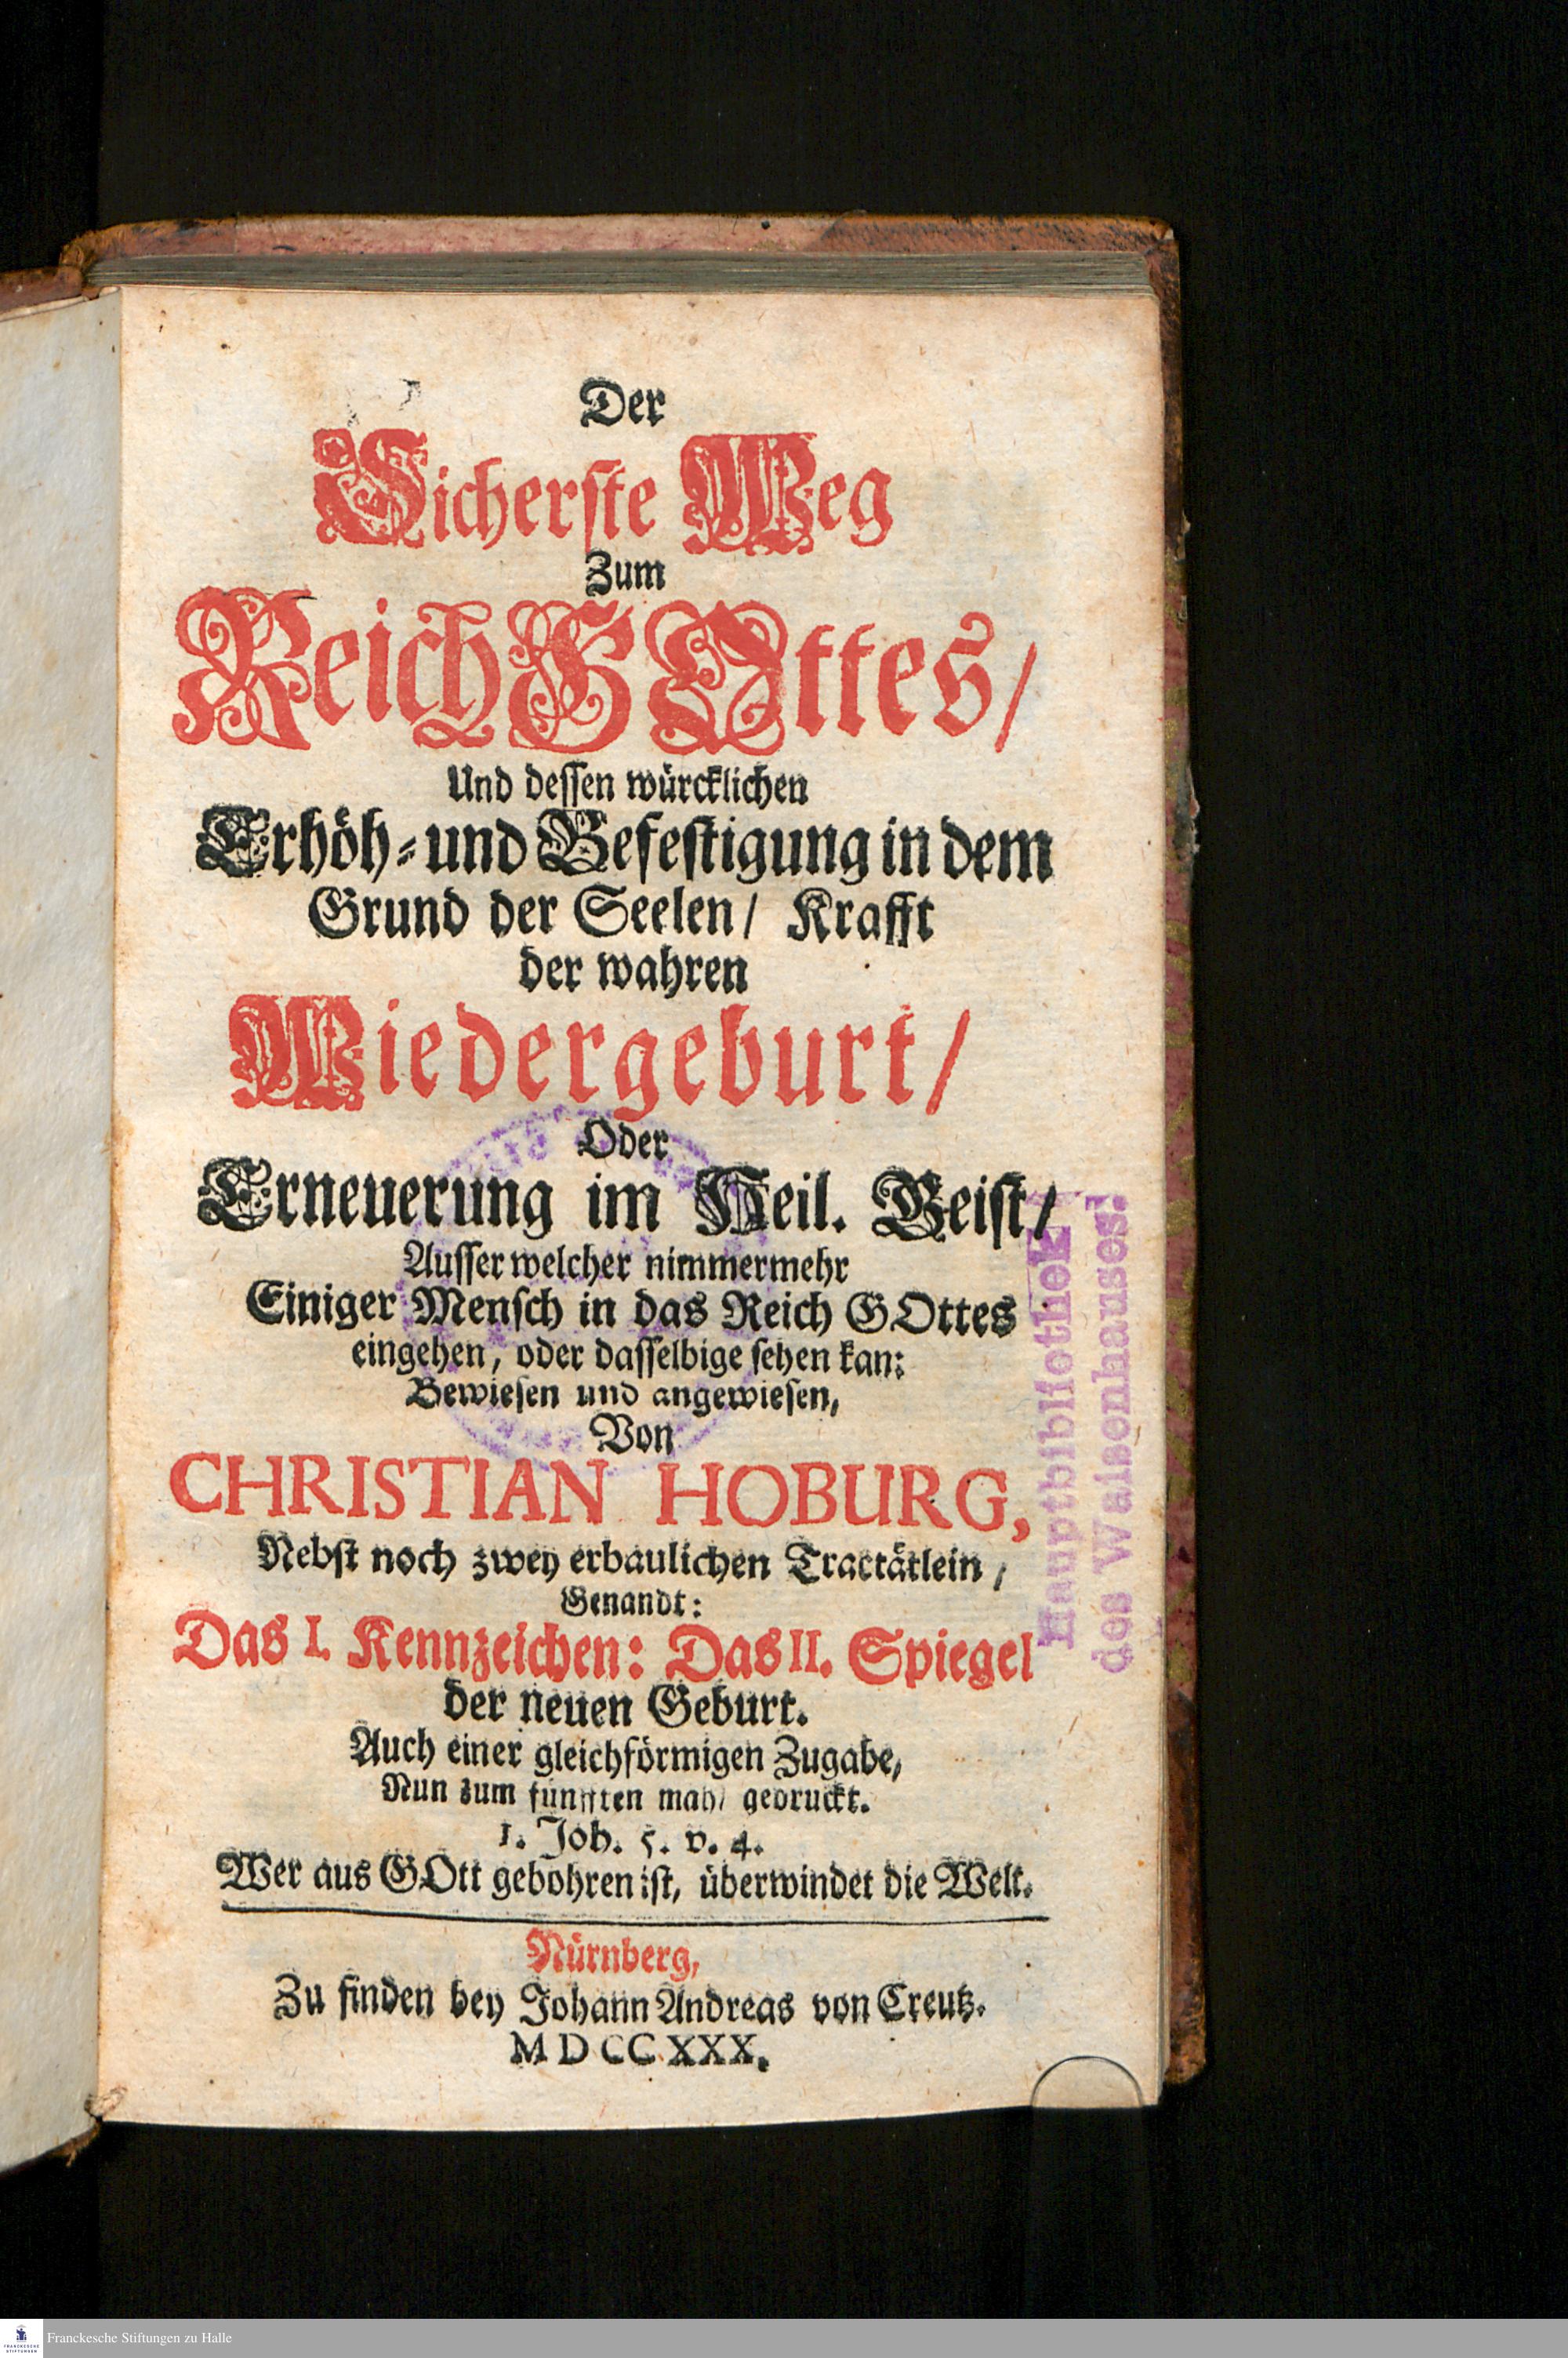 Der
Sicherste Weg
Zum
Reich GOttes/
Und dessen würcklichen
Erhöh-und Befestigung in dem
Grund der Seelen/ Krafft
der wahren
Wiedergeburt/
Oder
Erneuerung im Heil. Geist/
Ausser welcher nimmermehr
Einiger Mensch in das Reich GOttes
eingehen, oder dasselbige sehen kan:
Bewiesen und angewiesen,
Von
CHRISTIAN HOBURG,
Nebst noch zwey erbaulichen Tractätlein,
Genandt:
Das I. Kennzeichen: Das II. Spiegel
der neuen Geburt.
Auch einer gleichförmigen Zugabe,
Nun zum fünfften mahl gedruckt.
1. Joh. 5. v. 4.
Wer aus GOtt gebohren ist, überwindet die Welt.
Nürnberg,
Zu finden bey Johann Andreas von Creutz.
MDCCXXX.
Hauptbibliothek
des Waisenhauses.
FRANCKESCHE
STIFTUNGEN
Franckesche Stiftungen zu Halle